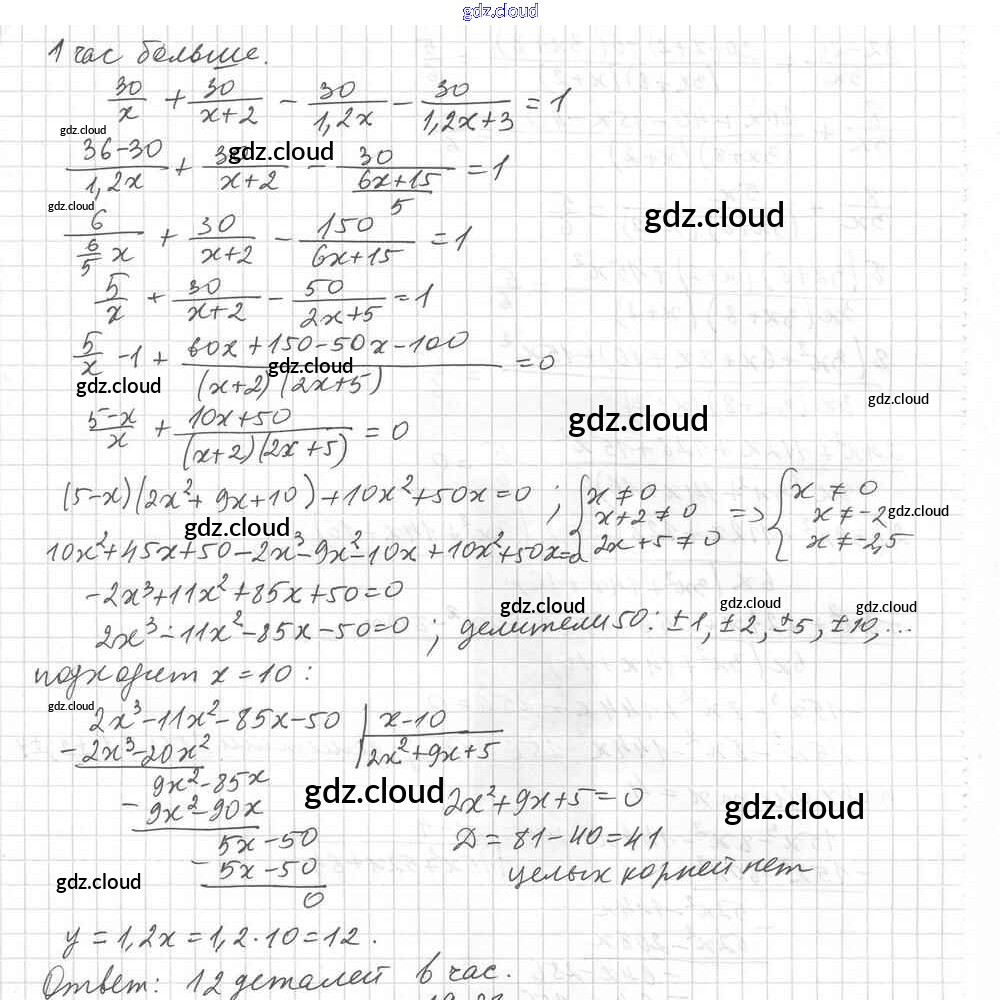 gdz.cloud
1 час больше.
30/x + 30/(x+2) - 30/(1,2x) - 30/(1,2x+3) = 1
gdz.cloud
(36-30)/(1,2x) + 30/(x+2) - 30/((6x+15)/5) = 1
gdz.cloud
gdz.cloud
6/((6/5)x) + 30/(x+2) - 150/(6x+15) = 1
gdz.cloud
5/x + 30/(x+2) - 50/(2x+5) = 1
5/x - 1 + (60x+150-50x-100)/((x+2)(2x+5)) = 0
gdz.cloud
gdz.cloud
gdz.cloud
(5-x)/x + (10x+50)/((x+2)(2x+5)) = 0
gdz.cloud
(5-x)(2x²+9x+10)+10x²+50x=0 ; { x≠0 x+2≠0 2x+5≠0 => { x≠0 x≠-2 x≠-2,5
gdz.cloud
gdz.cloud
10x²+45x+50-2x³-9x²-10x+10x²+50x=0
-2x³+11x²+85x+50=0
gdz.cloud
gdz.cloud
gdz.cloud
2x³-11x²-85x-50=0 ; делители 50: ±1, ±2, ±5, ±10,...
подходит x=10:
gdz.cloud
2x³-11x²-85x-50 | x-10
- 2x³-20x² | 2x²+9x+5
9x²-85x
- 9x²-90x
gdz.cloud
2x²+9x+5=0
gdz.cloud
5x-50
Д=81-40=41
- 5x-50
целых корней нет
gdz.cloud
0
y=1,2x=1,2·10=12.
Ответ: 12 деталей в час.